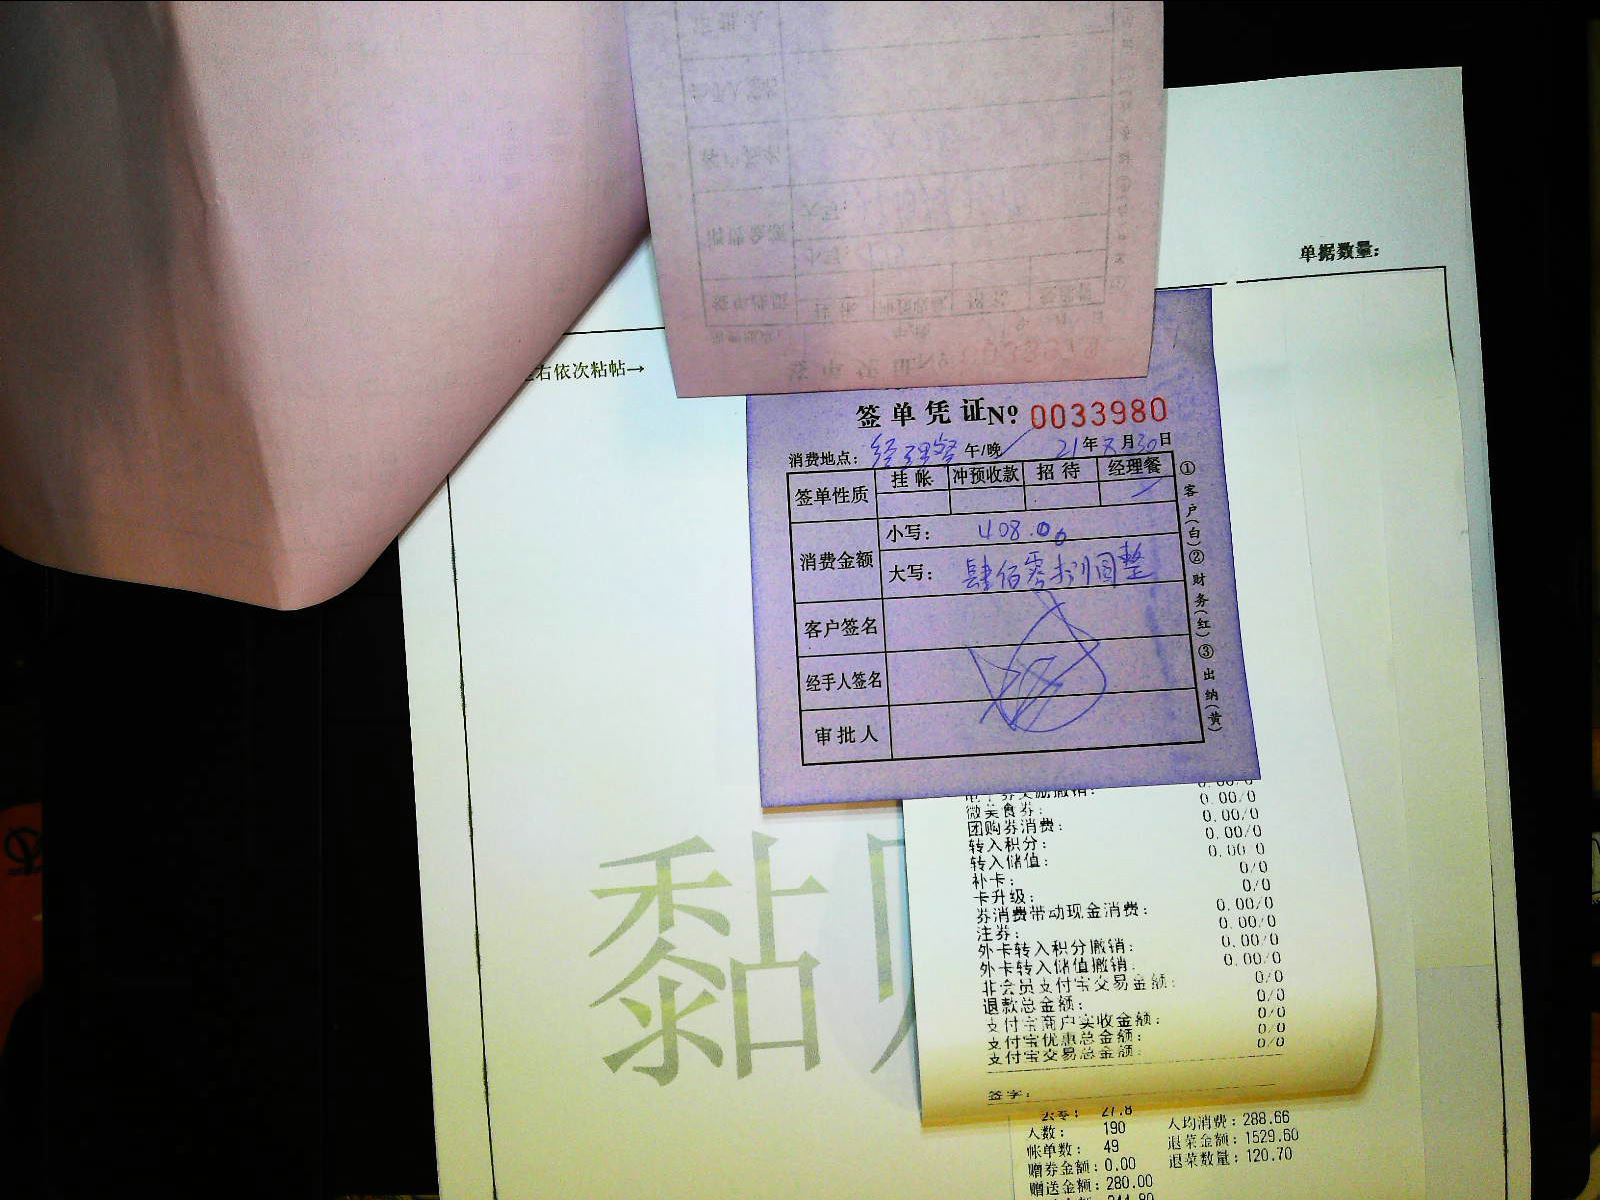 单据数量:
右依次粘帖→
签单凭证№ 0033980
消费地点: 经理餐 午/晚 21年8月30日
签单性质 挂帐 冲预收款 招待 经理餐
消费金额 小写: 408.00
大写: 肆佰零捌圆整
客户签名
经手人签名
审批人
①客户(白)②财务(红)③出纳(黄)
0.00/0
微美食券: 0.00/0
团购券消费: 0.00/0
转入积分: 0.00/0
转入储值: 0.00 0
补卡: 0/0
卡升级: 0/0
券消费带动现金消费: 0.00/0
注券: 0.00/0
外卡转入积分撤销: 0.00/0
外卡转入储值撤销: 0.00/0
非会员支付宝交易金额: 0/0
退款总金额: 0/0
支付宝商户实收金额: 0/0
支付宝优惠总金额: 0/0
支付宝交易总金额: 0/0
签字:
27.8
人数: 190 人均消费: 288.66
帐单数: 49 退菜金额: 1529.60
赠券金额: 0.00 退菜数量: 120.70
赠送金额: 280.00
黏